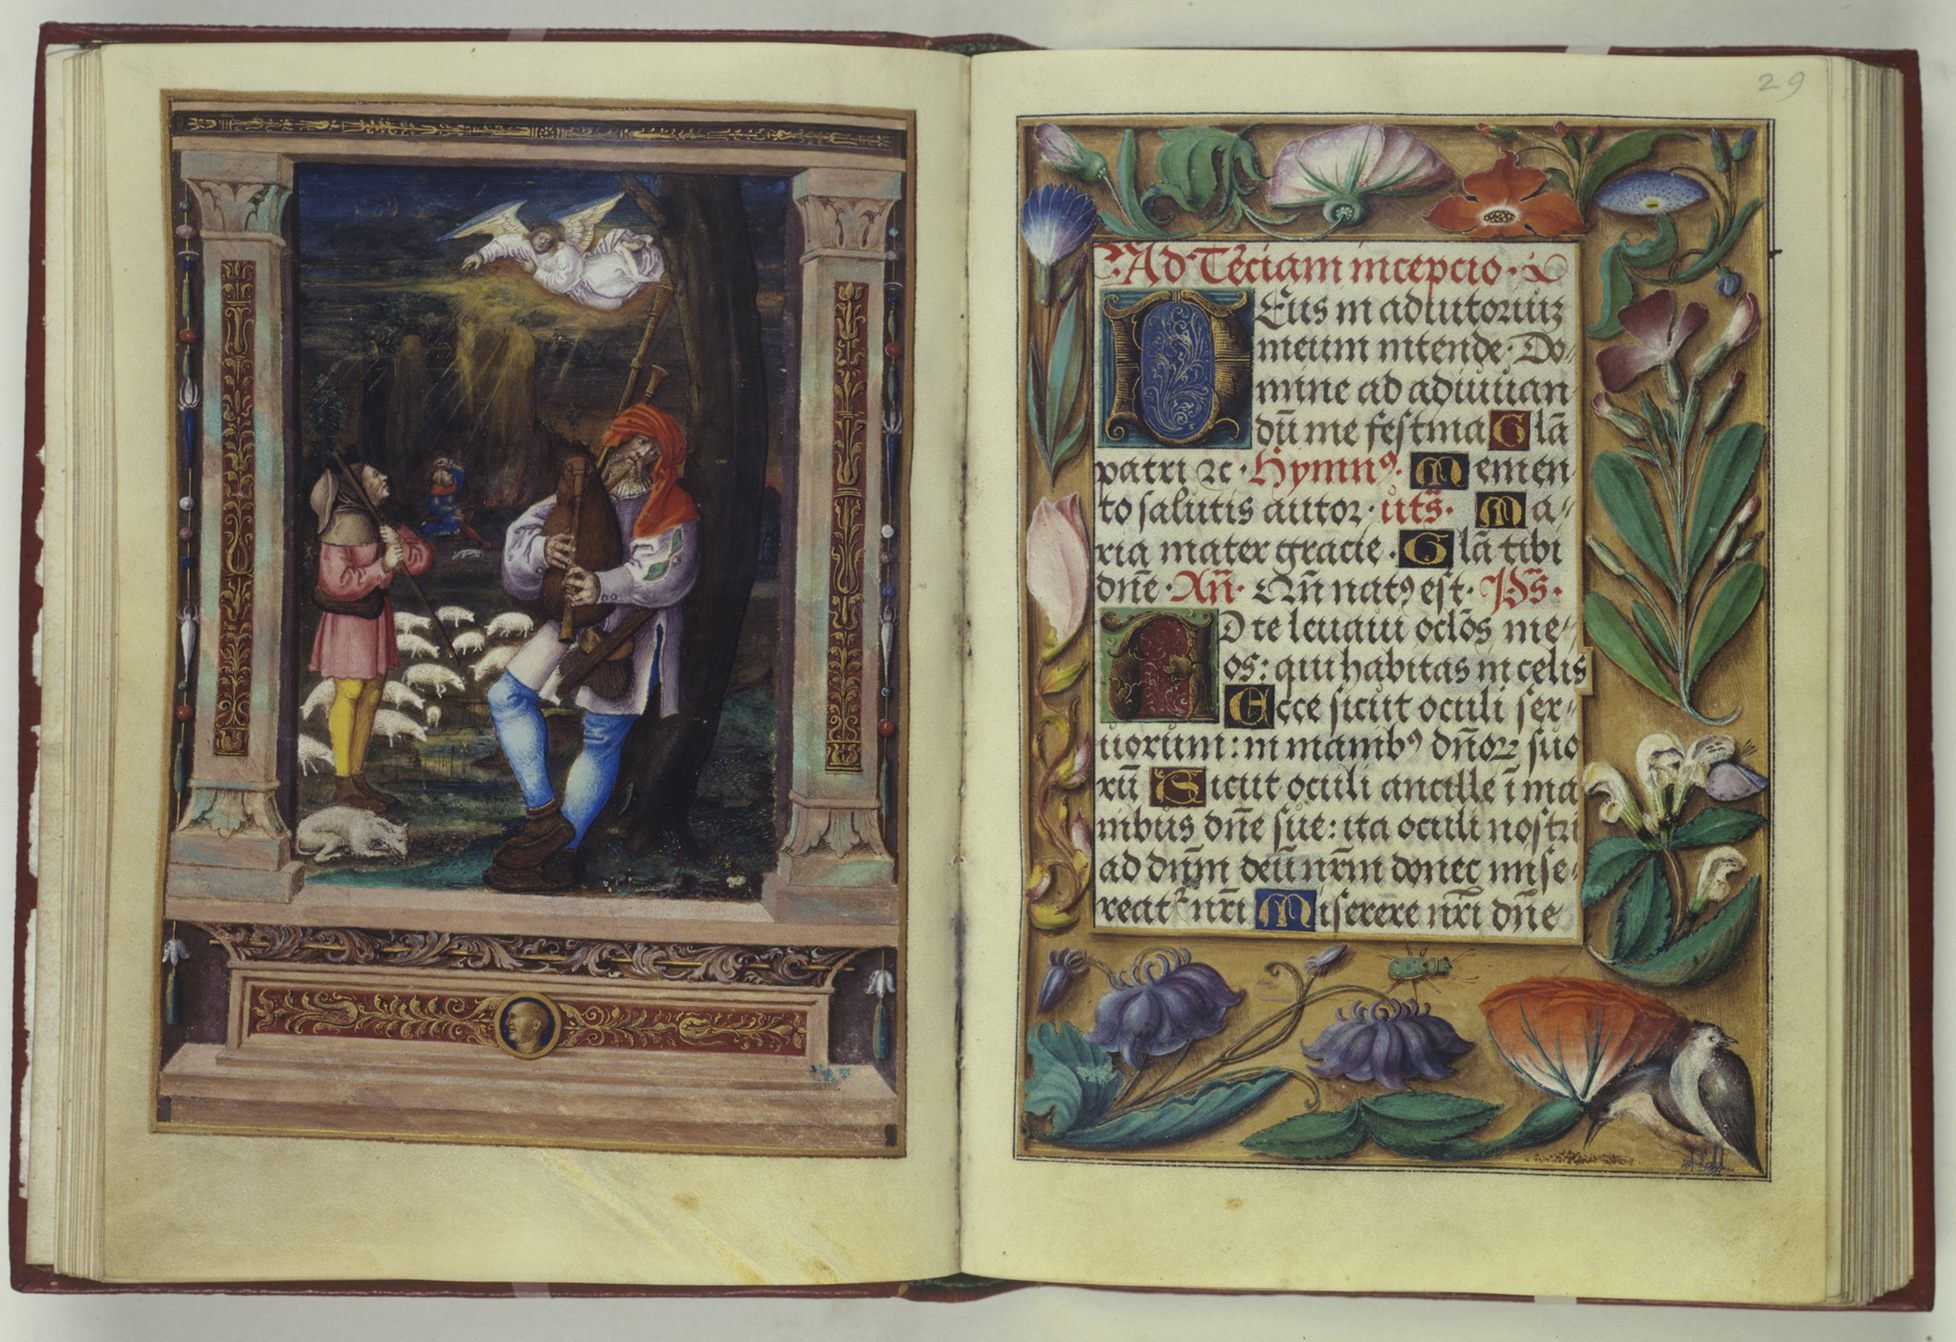 29
Ad Terciam incepcio.
DEus in adiutoriuz
meum intende. Do-
mine ad adiuuan
dū me festina Glā
patri ꝛc. Hymnꝰ. Memen
to salutis autor. uts̄. Ma-
ria mater gracie. Glā tibi
dn̄e. An̄. Qn̄ natꝰ est. Ps̄.
AD te leuaui oclōs me-
os: qui habitas in celis
Ecce sicut oculi ser-
uorum: in manibꝰ dn̄oꝝ suo
rū Sicut oculi ancille ī ma
nibus dn̄e sue: ita oculi nostri
ad dn̄m deū nr̄m donec mise-
reat᷑ nr̄i Miserere nr̄i dn̄e